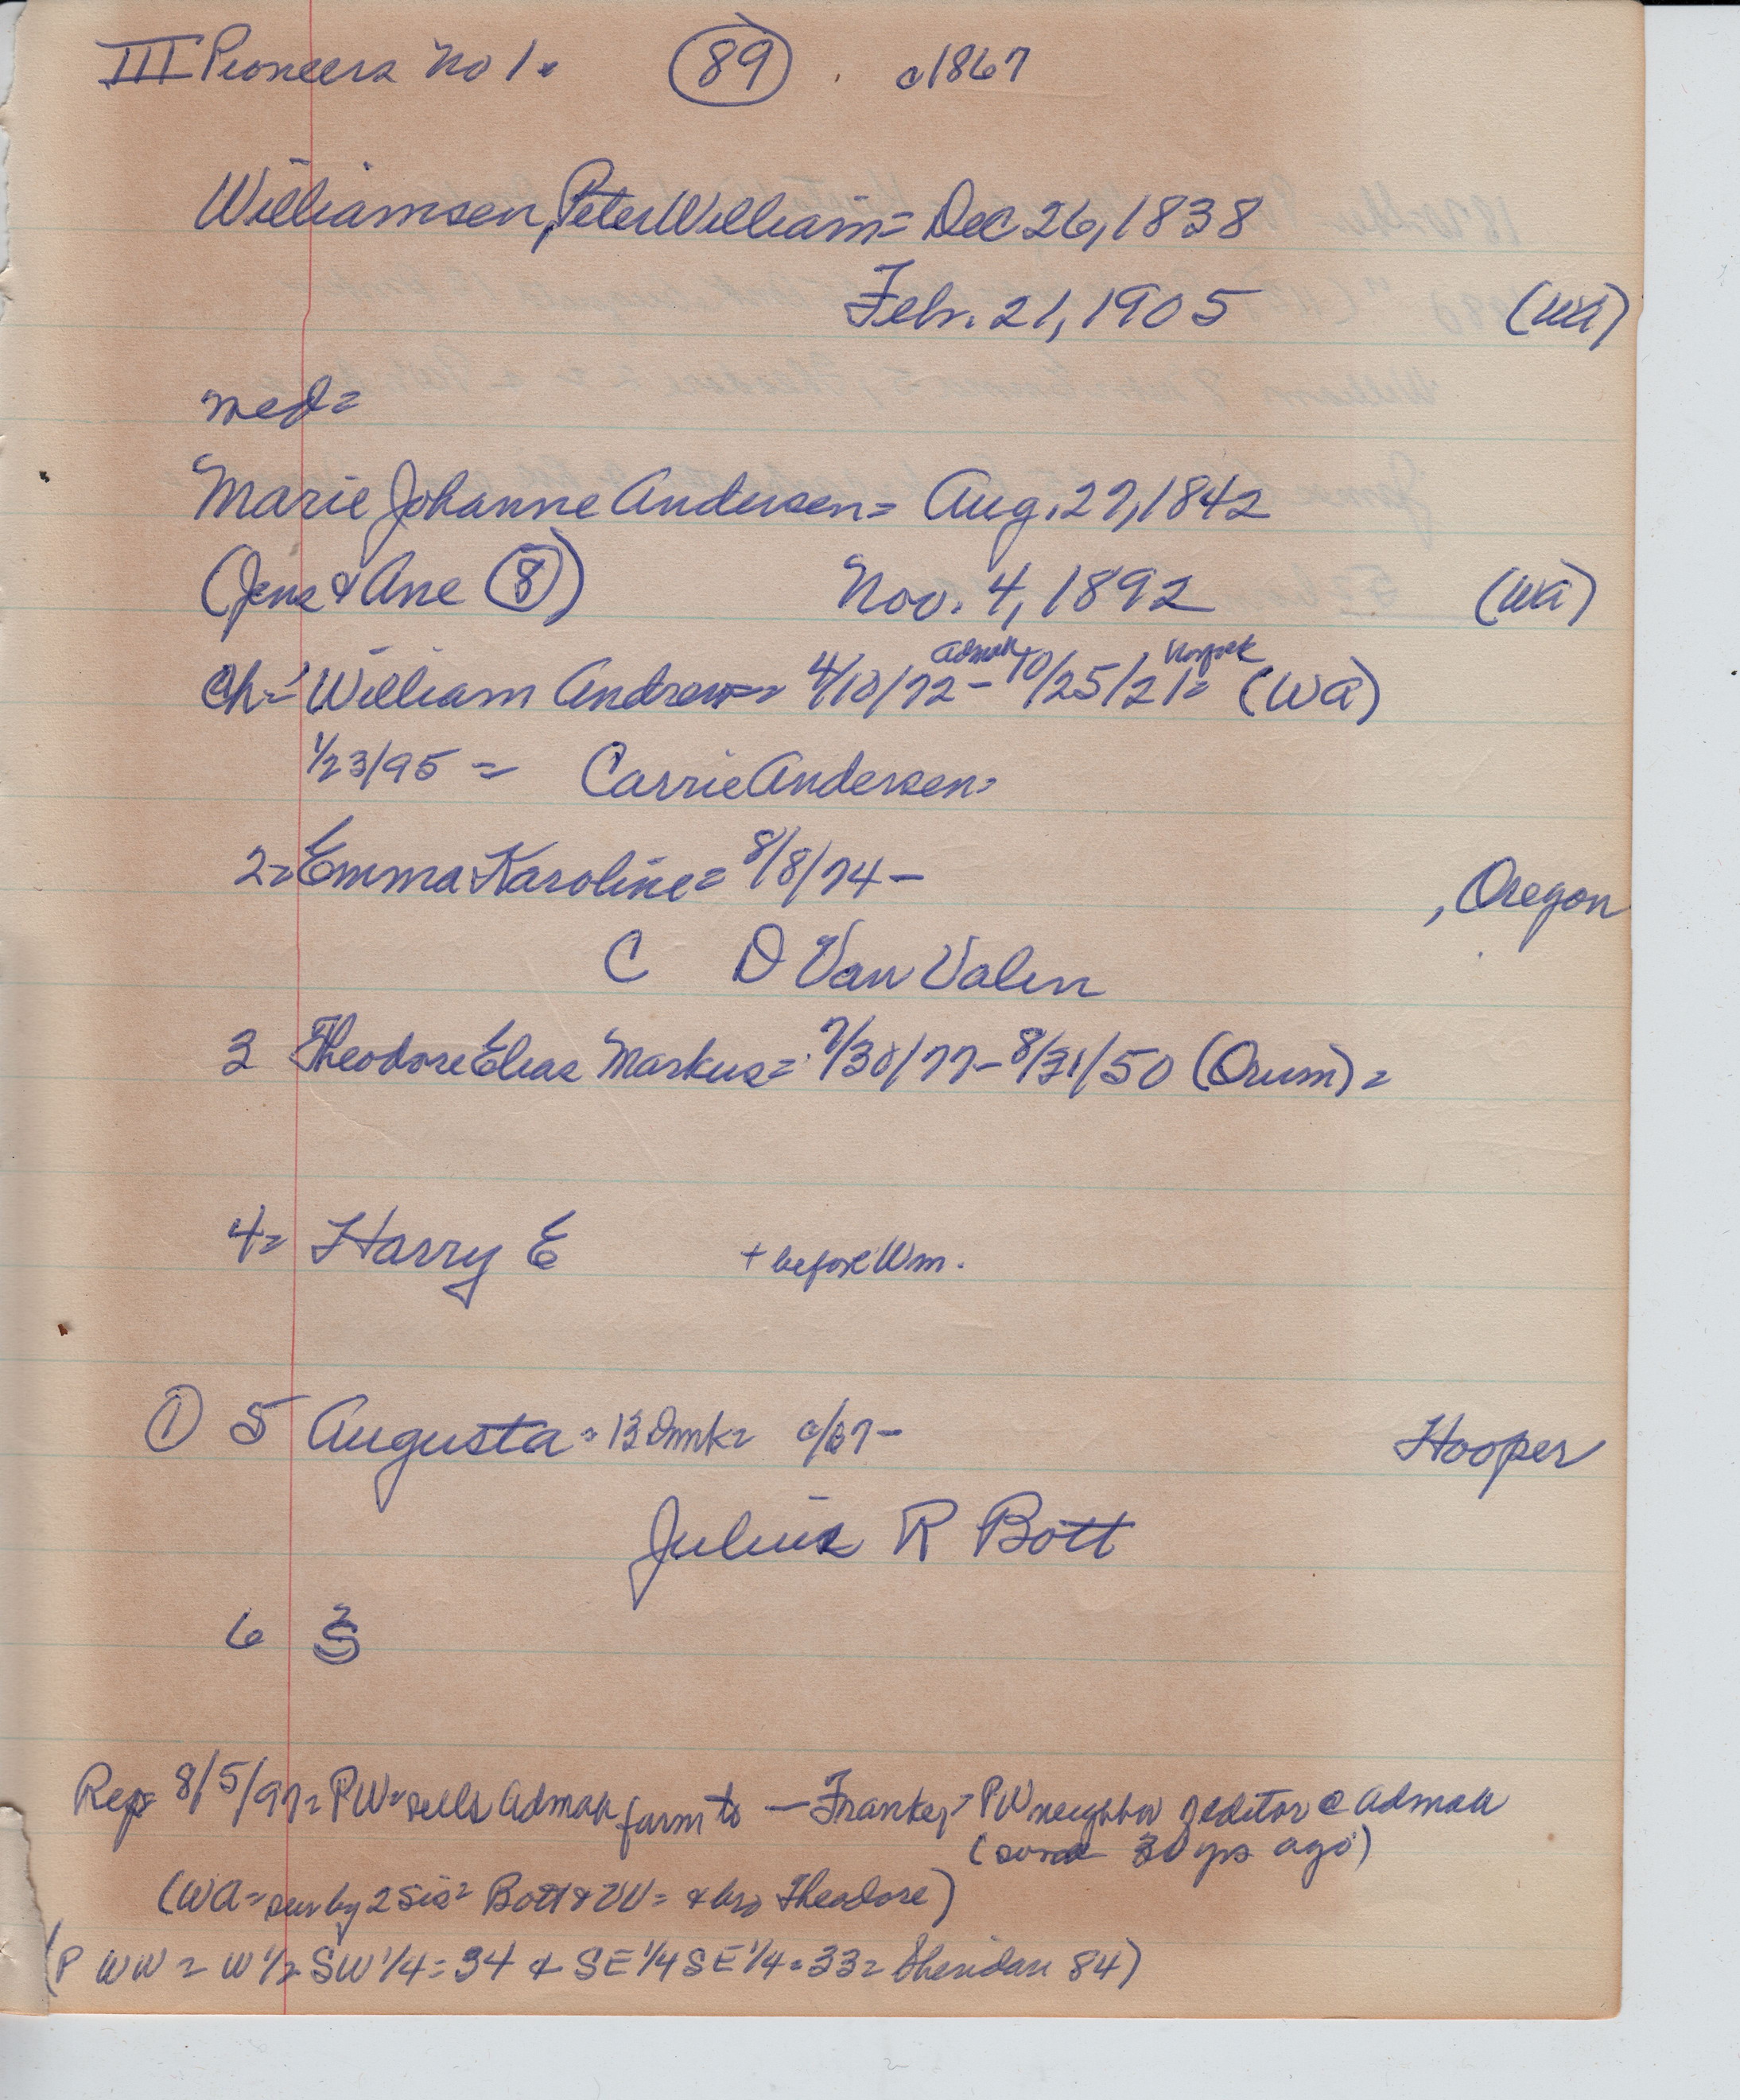 III Pioneers No 1. (89) . c1867
Williamsen, Peter William = Dec 26, 1838
Febr. 21, 1905 (WA)
med =
Marie Johanne Andersen = Aug. 27, 1842
(Jens & Ane (8)) Nov. 4, 1892 (WA)
Admah
Ch = William Andrew = 4/10/72 - 10/25/21 = (WA)
1/23/95 = Carrie Andersen =
2 = Emma Karoline = 8/8/74 - , Oregon
C D Van Valin
3 Theodore Elias Markus = 7/30/77 - 8/31/50 (Orum) =
4 = Harry E + before Wm.
(1) 5 Augusta = 13 Dmk = c/67 - Hooper
Julius R Bott
6
Rep = 8/5/97 = PW = sells Admah farm to — Franke, = PW neighbor editor @ Admah
( 30 yrs ago)
(WA = sur by 2 sis = Bott & VV = & bro Theodore)
(P WW = W 1/2 SW 1/4 = 34 & SE 1/4 SE 1/4 = 33 = Sheridan 84)